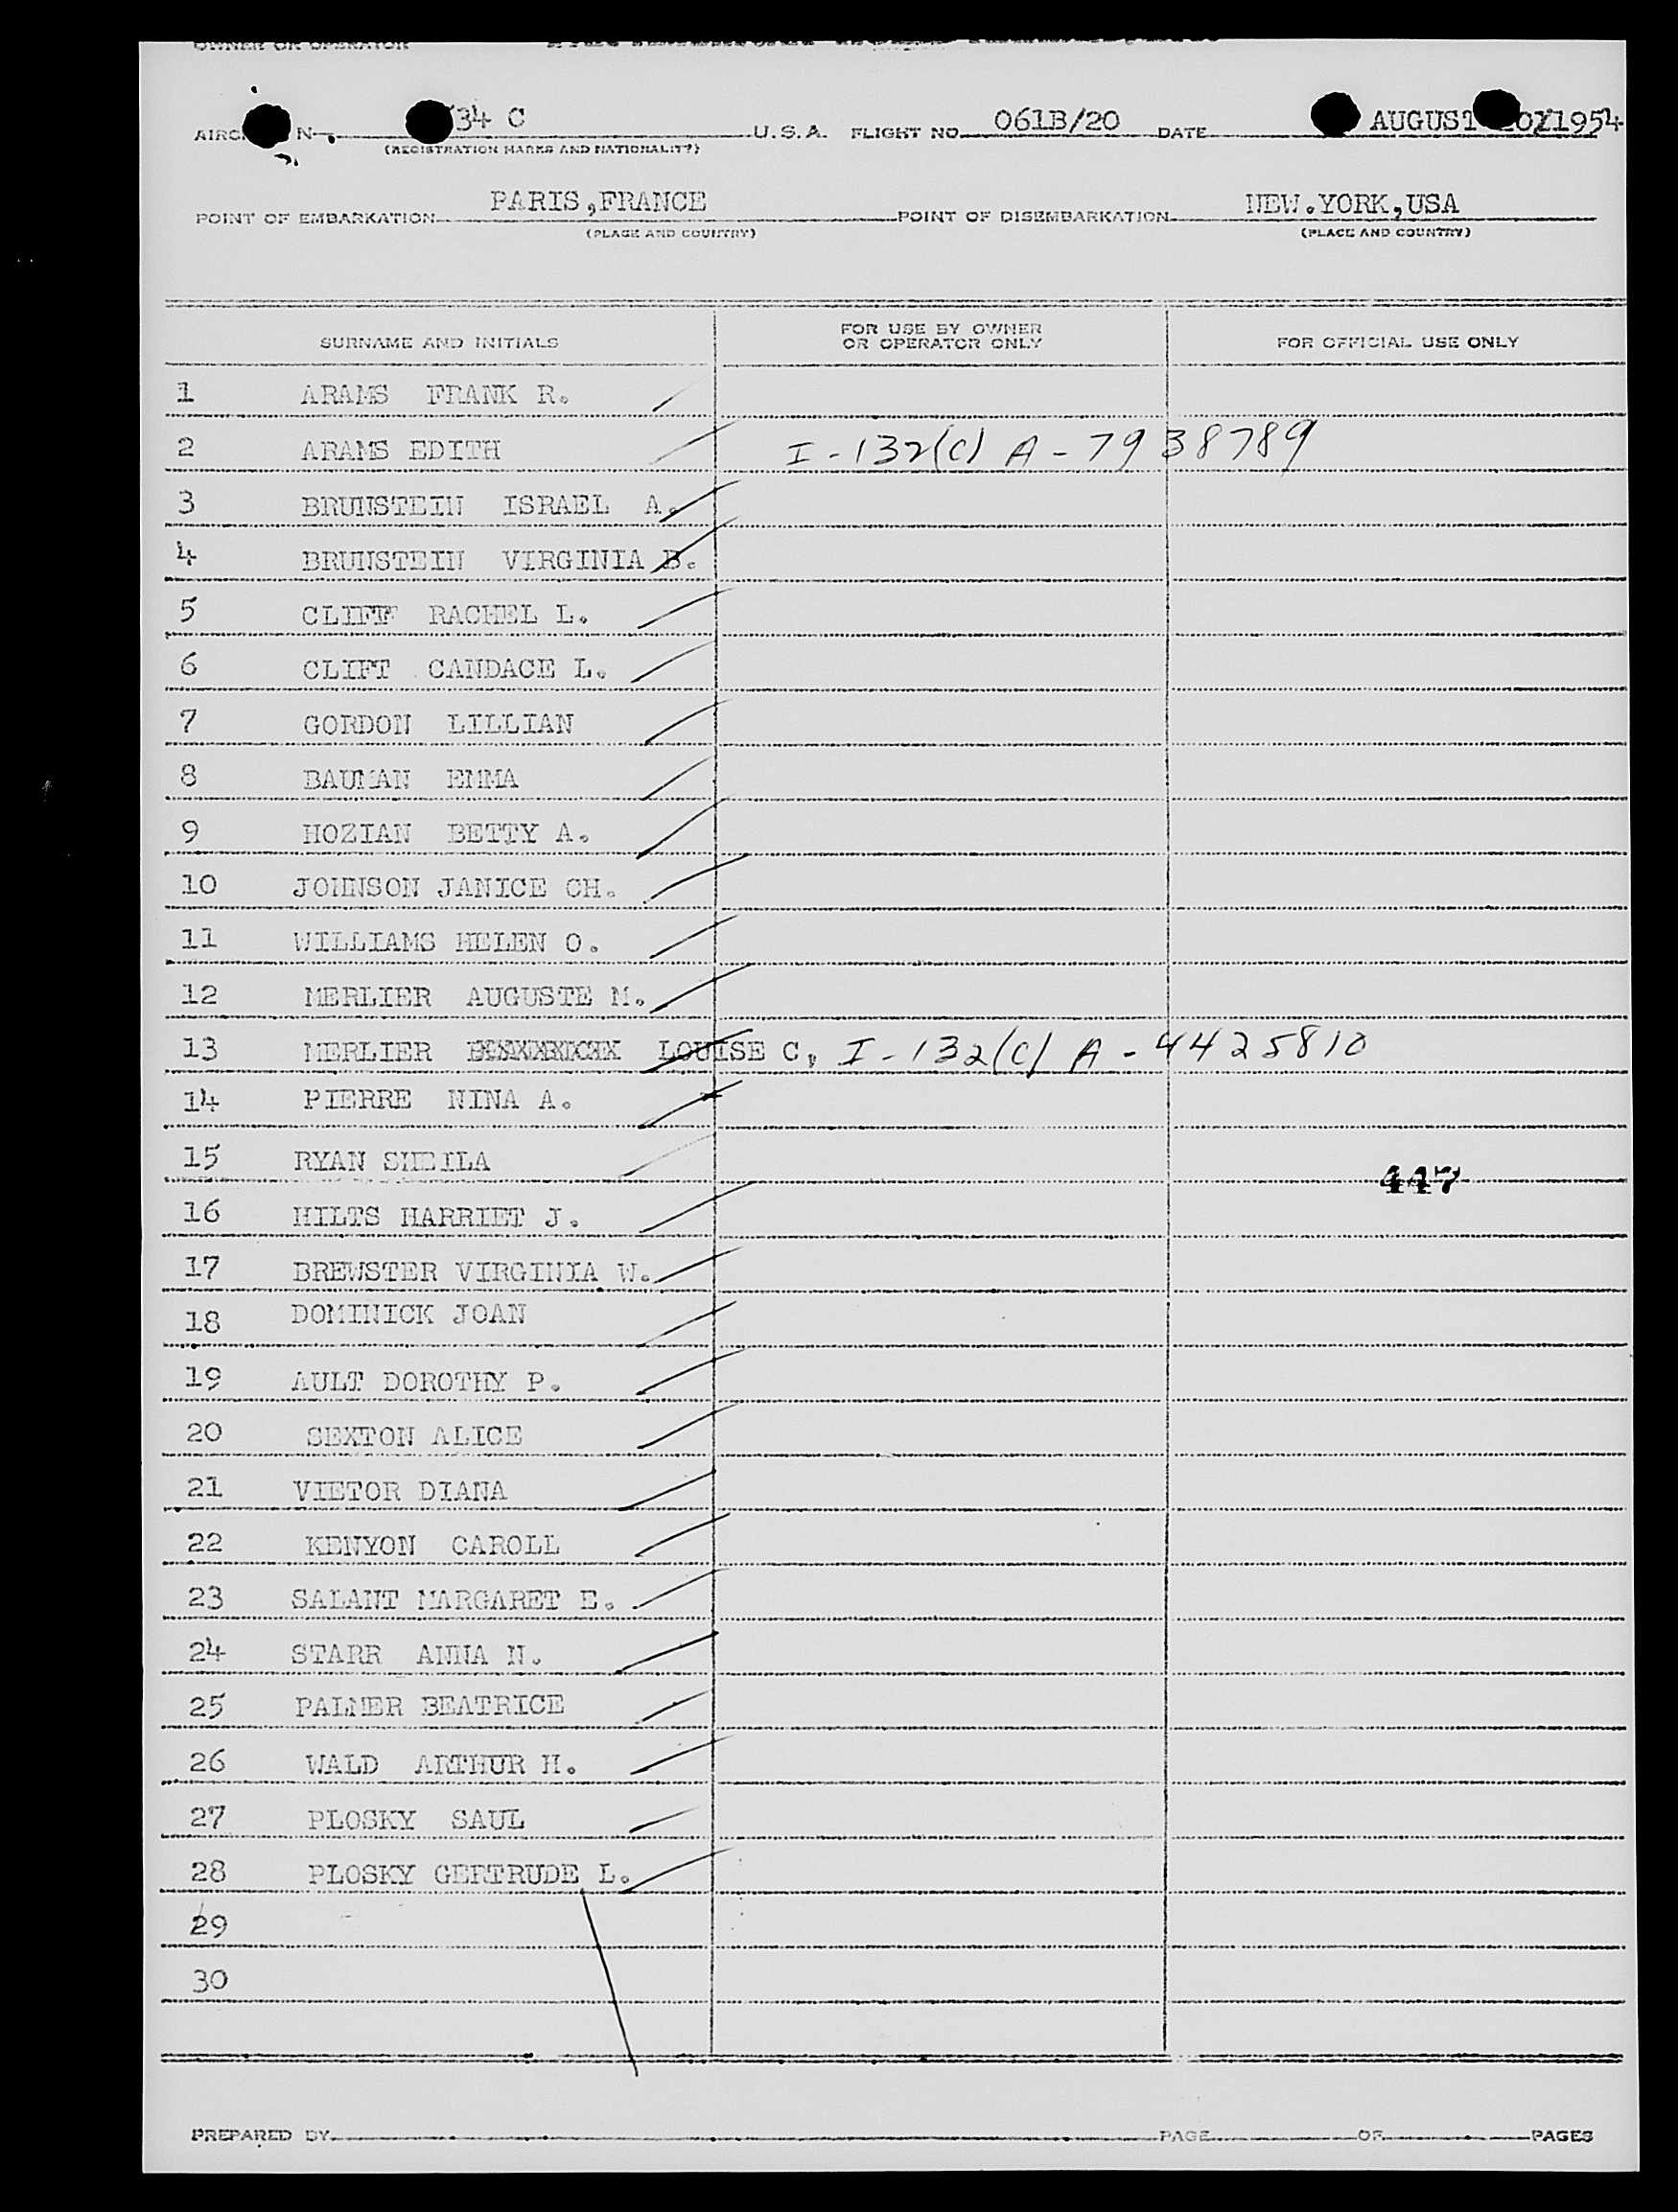 OWNER OR OPERATOR
N 34 C U.S.A. FLIGHT NO. 061B/20 DATE AUGUST 1954
(REGISTRATION MARKS AND NATIONALITY)
POINT OF EMBARKATION PARIS,FRANCE POINT OF DISEMBARKATION NEW.YORK,USA
(PLACE AND COUNTRY) (PLACE AND COUNTRY)
SURNAME AND INITIALS FOR USE BY OWNER OR OPERATOR ONLY FOR OFFICIAL USE ONLY
1 ARAMS FRANK R.
2 ARAMS EDITH I-132(C) A-7938789
3 BRUNSTEIN ISRAEL A.
4 BRUNSTEIN VIRGINIA B.
5 CLIFT RACHEL L.
6 CLIFT CANDACE L.
7 GORDON LILLIAN
8 BAUMAN EMMA
9 HOZIAN BETTY A.
10 JOHNSON JANICE CH.
11 WILLIAMS HELEN O.
12 MERLIER AUGUSTE M.
13 MERLIER LOUISE C, I-132(C) A-4425810
14 PIERRE NINA A.
15 RYAN SHEILA
447
16 HILTS HARRIET J.
17 BREWSTER VIRGINIA W.
18 DOMINICK JOAN
19 AULT DOROTHY P.
20 SEXTON ALICE
21 VIETOR DIANA
22 KENYON CAROLL
23 SALANT MARGARET E.
24 STARR ANNA N.
25 PALMER BEATRICE
26 WALD ARTHUR H.
27 PLOSKY SAUL
28 PLOSKY GERTRUDE L.
29
30
PREPARED BY PAGE OF PAGES